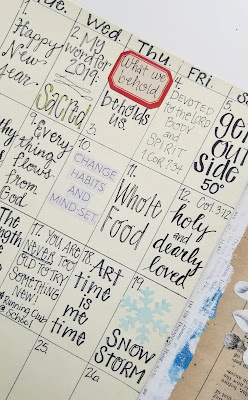 Tue.
Wed.
Thu.
Fri.
S
1.
Happy
New
Year.
2. My
wonder
2019:
Sacred
3.
What we
behold
beholds
us.
4.
DEVOTED
to the LORD
BODY
and
SPIRIT
1 Cor 7:34
5.
get
out
side
50°
9. Every
thing
flows
from
God
10.
CHANGE
HABITS
AND
MIND-SET
11.
Whole
Food
12. Col. 3:12
holy
and
dearly
loved
17. YOU ARE
NEVER TOO
OLD TO TRY
SOMETHING
NEW!
Running Club
@ School
18.
Art
time
is
me
time
19.
SNOW
STORM
25.
26.